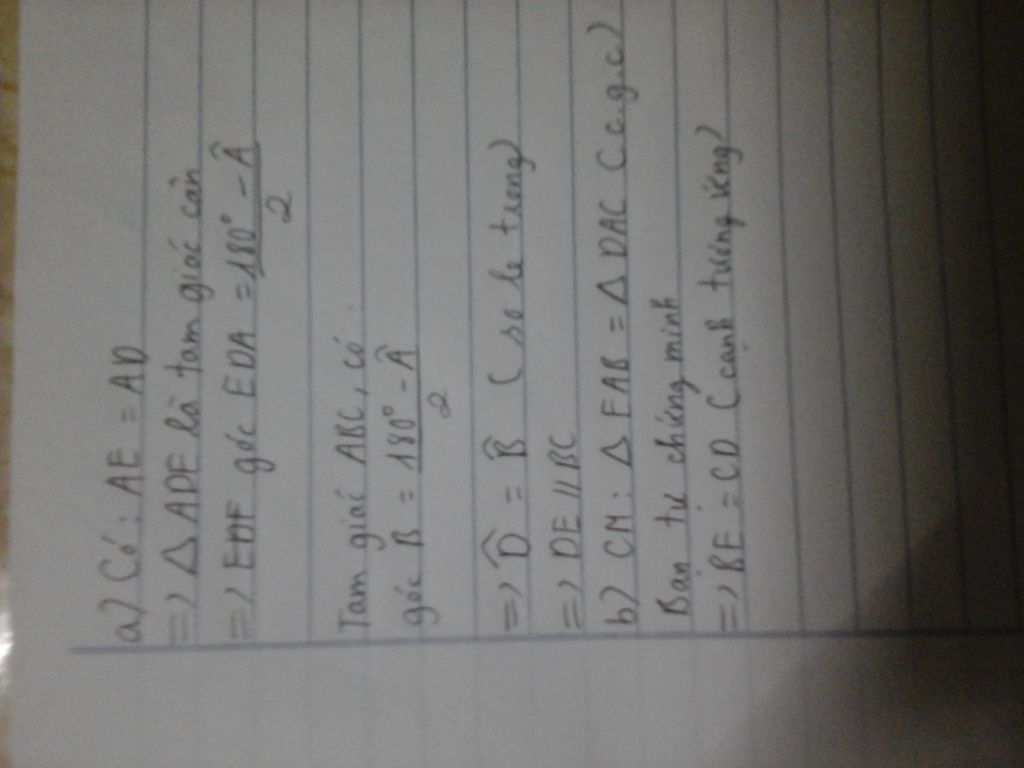 a) Có: AE = AD
=> △ ADE là tam giác cân
=> góc EDA = 180° - Â / 2
Tam giác ABC, có:
góc B = 180° - Â / 2
=> D̂ = B̂ (so le trong)
=> DE // BC
b) CM: △ EAB = △ DAC (c.g.c)
Bạn tự chứng minh
=> BE = CD (cạnh tương ứng)